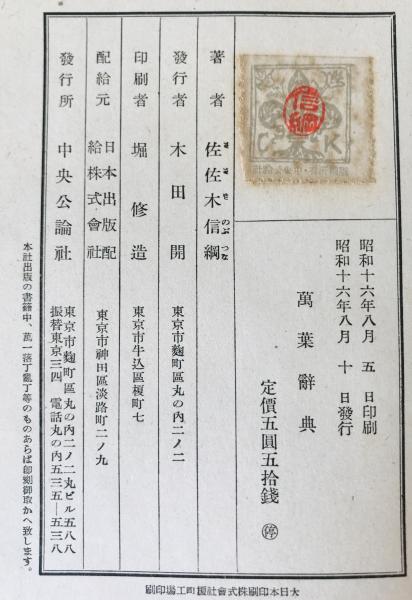 昭和十六年八月 五 日印刷
昭和十六年八月 十 日發行
萬葉辭典
定價五圓五拾錢
停
信綱
C K
著者 佐佐木信綱
さ さ き のぶ つな
發行者 木田開
東京市麴町區丸の内二ノ二
印刷者 堀修造
東京市牛込區榎町七
配給元 日本出版配給株式會社
東京市神田區淡路町二ノ九
發行所 中央公論社
東京市麴町區丸の内二ノ二丸ビル五八八
振替東京三四 電話丸の内五三五—五三八
本社出版の書籍中、萬一落丁亂丁等のものあらば卽刻御取かへ致します。
大日本印刷株式會社榎町工場印刷